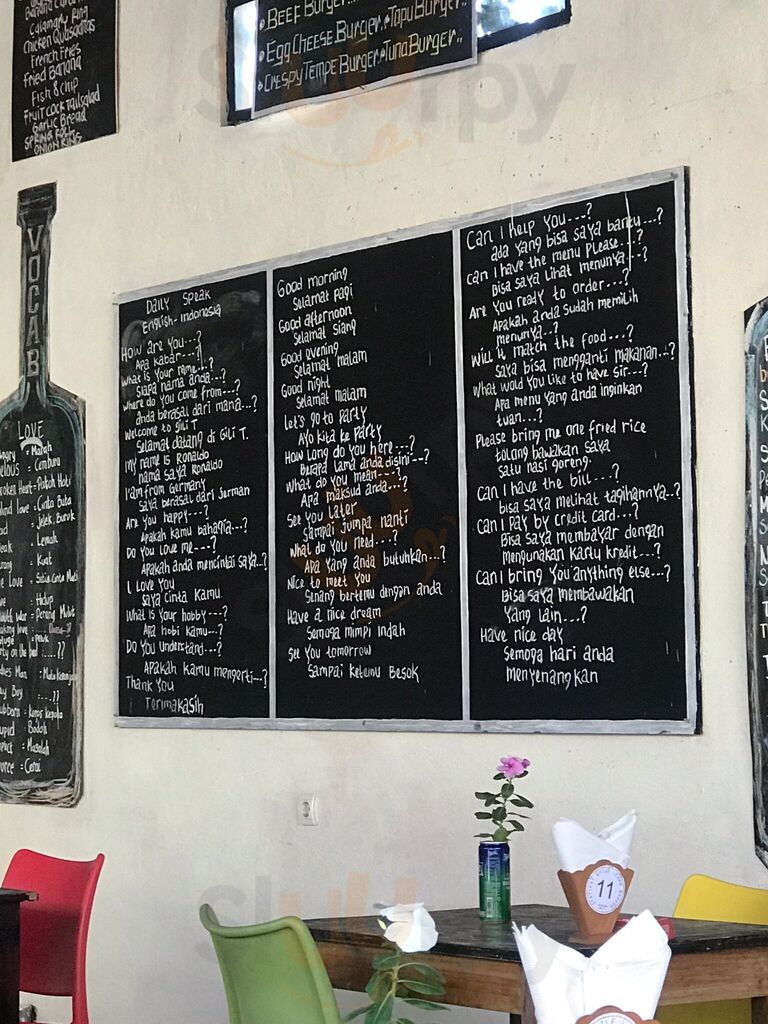 Banana Cake
Calamary Ring
Chicken Quesadillas
French Fries
Fried Banana
Fish & chip
Fruit Cock tail salad
Garlic Bread
Spring Roll
Onion Ring
Beef Burger
Tapu Burger
Egg Cheese Burger
Crespy Tempe Burger
Tuna Burger
VOCAB
LOVE
= Marah
= Cemburu
Broken Heart = Patah Hati
Blind love = Cinta Buta
= Jelek, Buruk
= Lemah
= Kuat
= Hidup
Daily Speak
English-Indonesia
How are you---?
Apa kabar---?
What is Your name---?
Siapa nama anda---?
Where do You come from---?
anda berasal dari mana---?
Welcome to Gili T
Selamat datang di Gili T.
My name is Ronaldo
nama saya Ronaldo
I'am from Germany
Saya berasal dari Jerman
Are You happy---?
Apakah kamu bahagia---?
Do You Love me---?
Apakah anda mencintai saya..?
I Love You
Saya cinta kamu
What is Your hobby---?
Apa hobi kamu---?
Do You understand---?
Apakah kamu mengerti---?
Thank You
Terimakasih
Good morning
Selamat pagi
Good afternoon
Selamat siang
Good evening
Selamat malam
Good night
Selamat malam
Let's go to Party
Ayo kita ke Party
How Long do You here---?
Berapa Lama anda disini---?
What do You mean---?
Apa maksud anda---?
See You Later
Sampai jumpa nanti
What do You need---?
Apa Yang anda butuhkan---?
Nice to meet You
Senang bertemu dengan anda
Have a nice dream
Semoga mimpi indah
See You tomorrow
Sampai ketemu Besok
Can I help You---?
ada yang bisa saya bantu---?
Can I have the menu Please---?
Bisa saya Lihat menunya---?
Are You ready to order---?
Apakah anda Sudah memilih
menunya---?
Will it match the food---?
Saya bisa mengganti makanan---?
What would You Like to have Sir---?
Apa menu yang anda inginkan
tuan---?
Please bring me one fried rice
tolong bawakan saya
satu nasi goreng.
Can I have the bill---?
bisa saya melihat tagihannya--?
Can I Pay by credit Card---?
Bisa saya membayar dengan
mengunakan kartu kredit---?
Can I bring You anything else---?
Bisa saya membawakan
Yang lain---?
Have nice day
Semoga hari anda
menyenangkan
= Keras kepala
= Bodoh
= Masalah
= Cerai
11
slurrpy